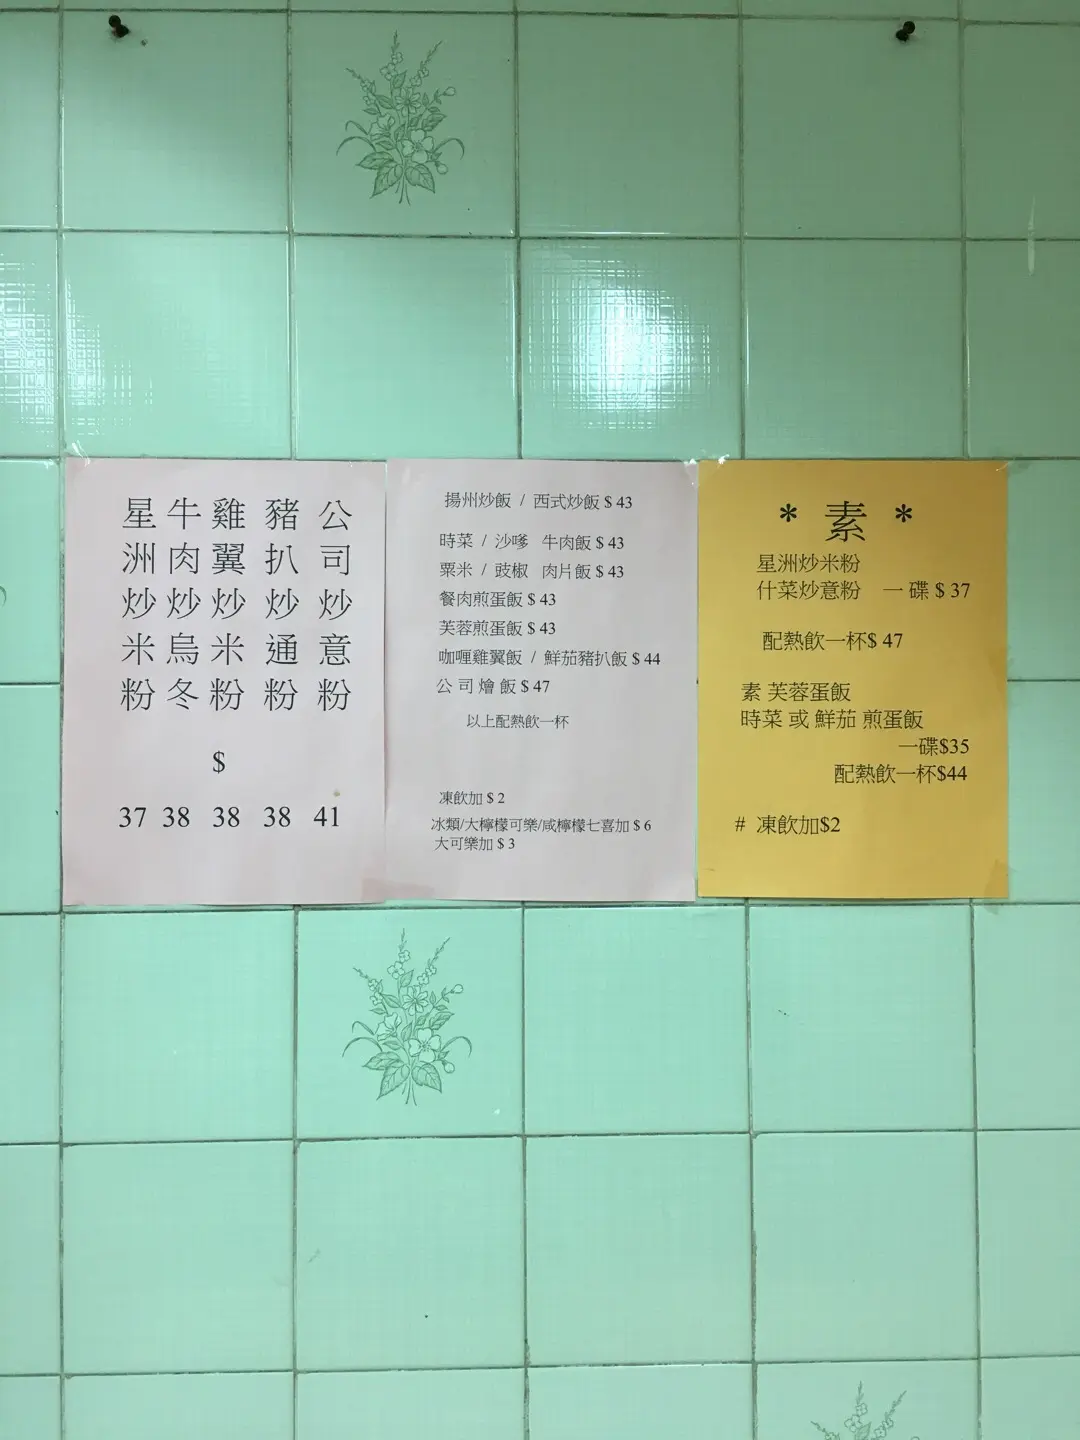 星洲炒米粉
牛肉炒烏冬
雞翼炒米粉
豬扒炒通粉
公司炒意粉
$
37 38 38 38 41
揚州炒飯 / 西式炒飯 $ 43
時菜 / 沙嗲 牛肉飯 $ 43
粟米 / 豉椒 肉片飯 $ 43
餐肉煎蛋飯 $ 43
芙蓉煎蛋飯 $ 43
咖喱雞翼飯 / 鮮茄豬扒飯 $ 44
公司燴飯 $ 47
以上配熱飲一杯
凍飲加 $ 2
冰類/大檸檬可樂/咸檸檬七喜加 $ 6
大可樂加 $ 3
* 素 *
星洲炒米粉
什菜炒意粉 一碟 $ 37
配熱飲一杯$ 47
素 芙蓉蛋飯
時菜 或 鮮茄 煎蛋飯
一碟$35
配熱飲一杯$44
# 凍飲加$2